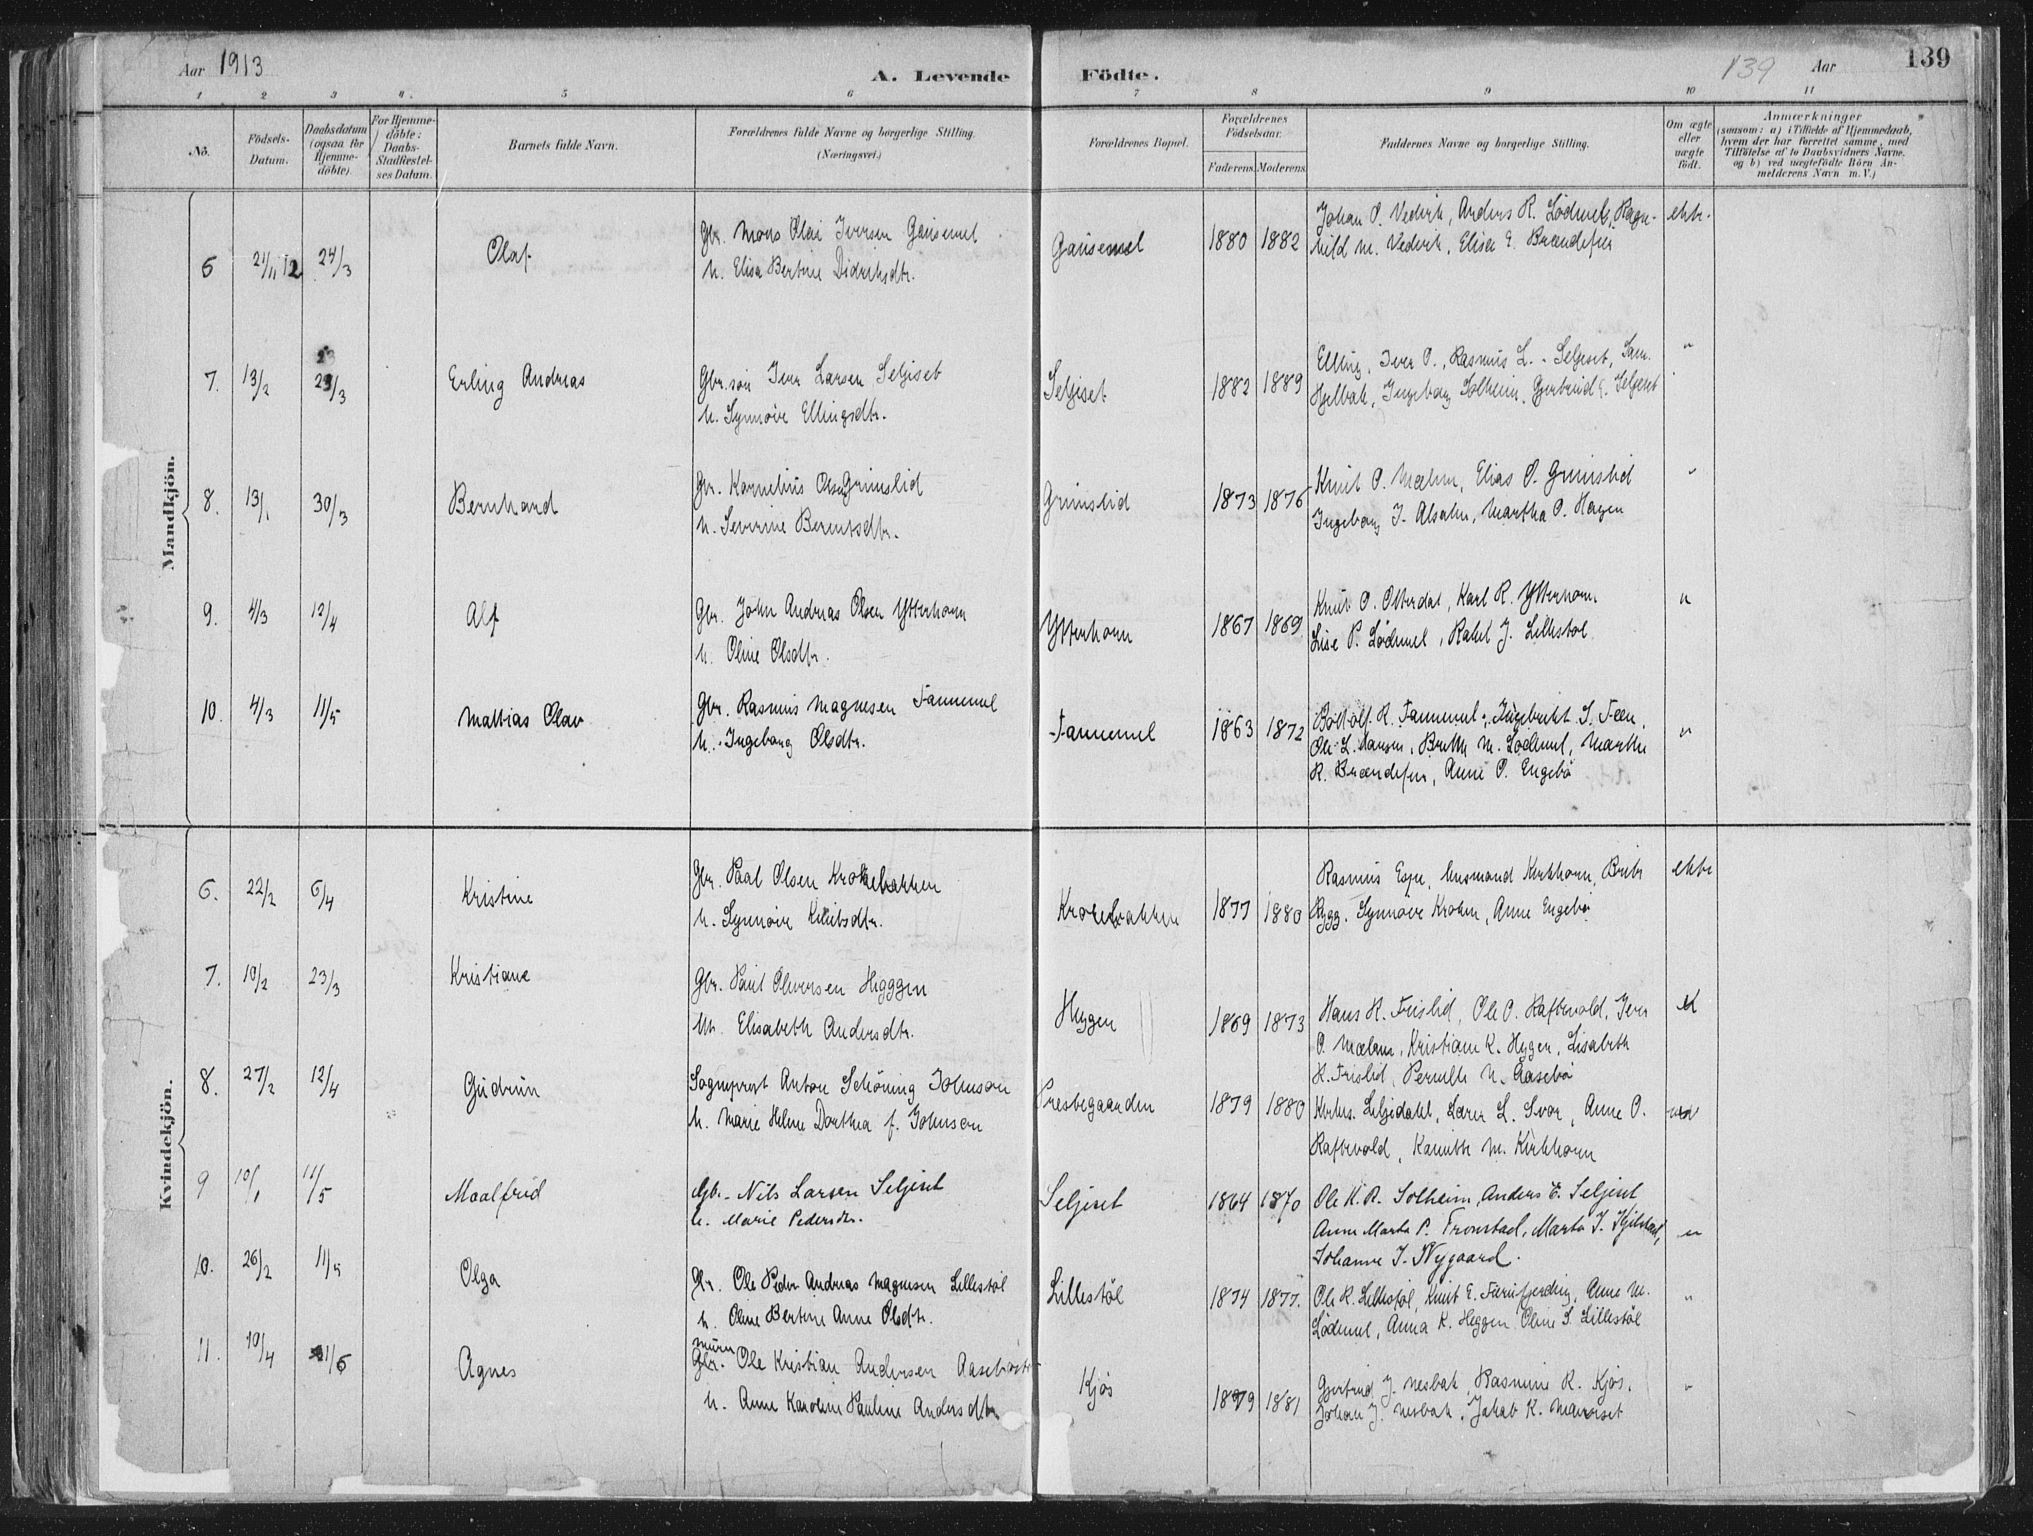 Aar 1913
A. Levende Födte.
139 Aar 139
1 2 3 4. 5 6 7 8 9 10 11
No.
Födsels-Datum.
Daabsdatum (ogsaa for Hjemme-döbte).
For Hjemme-döbte: Daabs-Stadfæstel-ses Datum.
Barnets fulde Navn.
Forældrenes fulde Navne og borgerlige Stilling. (Næringsvei.)
Forældrenes Bopæl.
Forældrenes Födselsaar.
Faderens. Moderens.
Faddernes Navne og borgerlige Stilling.
Om ægte eller uægte födt.
Anmærkninger (saasom: a) i Tilfælde af Hjemmedaab, hvem der har forrettet samme, med Tilföielse af to Daabsvidners Navne. og b) ved uægtefödte Börn An-melderens Navn m. V.)
Mandkjön.
6 21/11 12 24/3 Olaf.
Gbr. Mons Olai Iversen Gausemel
h. Elisa Bertine Didriksdtr.
Gausemel 1880 1882
Johan O. Vedvik, Anders R. Lödemel, Ragn-
hild M. Vedvik, Elisa E. Brændefur
ekte.
7. 13/2 23/3 Erling Andreas
Gbr.søn Iver Larsen Seljeset
h. Synnöve Ellingsdtr.
Seljeset 1882 1889
Elling, Iver O., Rasmus L. Seljeset, Sam.
Hjelbak, Ingeborg Solheim, Gjertrud E. Seljeset
"
8. 13/1 30/3 Bernhard
Gbr. Kornelius Olsen Grimslid
h. Severine Berentsdtr.
Grimslid 1873 1876
Knut O. Mælen, Elias O. Grimslid
Ingeborg J. Alsaker, Martha O. Hagen
"
9. 4/3 12/4 Alf
Gbr. John Andreas Olsen Ytterhorn
h. Oline Olsdtr.
Ytterhorn 1867 1869
Knut O. Otterdal, Karl R. Ytterhorn
Lise P. Lödemel, Rakel J. Lillestöl
"
10. 4/3 11/5 Mathias Olav
Gbr. Rasmus Magnesen Fannemel
h. Ingeborg Olsdtr.
Fannemel 1863 1872
Bottolf R. Fannemel, Ingebrikt S. Feen,
Ole L. Hansen, Brithe M. Lödemel, Marthe
R. Brændefur, Anne O. Engebö
"
Kvindekjön.
6. 22/2 6/4 Kristine
Gbr. Paal Olsen Krokebakken
h. Synnöve Knutsdtr.
Krokebakken 1877 1880
Rasmus Espe, Aasmund Kirkhorn, Brite
Rygg, Synnöve Kroken, Anne Engebö
ekte
7. 10/2 23/3 Kristiane
Gbr. Paul Oliversen Higggen
h. Elisabeth Andersdtr.
Heggen 1869 1873
Hans K. Frislid, Ole O. Raftevold, Iver
O. Mælen, Kristiane K. Hygen, Lisabeth
K. Frislid, Pernille N. Aasebö
8. 27/2 12/4 Gudrun
Sogneprest Anton Schöning Johnson
h. Marie Helene Dorthea f. Johnson
Prestegaarden 1879 1880
Kirkes. Liljedahl, Lærer L. Svor, Anne O.
Raftevold, Kanutte M. Kirkhorn
9 10/1 11/5 Maalfrid
Gbr. Nils Larsen Seljeset
h. Marie Pedersdtr.
Seljeset 1864 1870
Ole K. R. Solheim, Anders E. Seljeset
Anne Marta P. Tronstad, Marta J. Hjelstad,
Johanne J. Nygaard.
"
10. 26/2 11/5 Olga
Gbr. Ole Peder Andreas Magnesen Lillestöl
h. Oline Bertine Anne Olsdtr.
Lillestöl 1874 1877.
Ole R. Lillestöl, Knut E. Færöfjerding, Anne M.
Lödemel, Anna K. Heggen, Oline S. Lillestöl
"
11. 19/4 11/6 Agnes
murer
Gbr. Ole Kristian Andersen Aasebö
h. Anne Karoline Pauline Andersdtr
Kjös 1879 1881
Gjertrud J. Nesbak, Rasmine K. Kjös,
Johan J. Nesbak, Jakob K. Mauseset
"